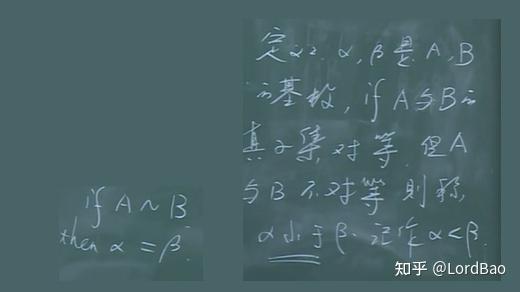 if A ~ B
then α = β.
定义2: α, β是A, B
的基数, if A与B的
真子集对等, 但A
与B不对等 则称
α小于β. 记作α<β.
知乎 @LordBao